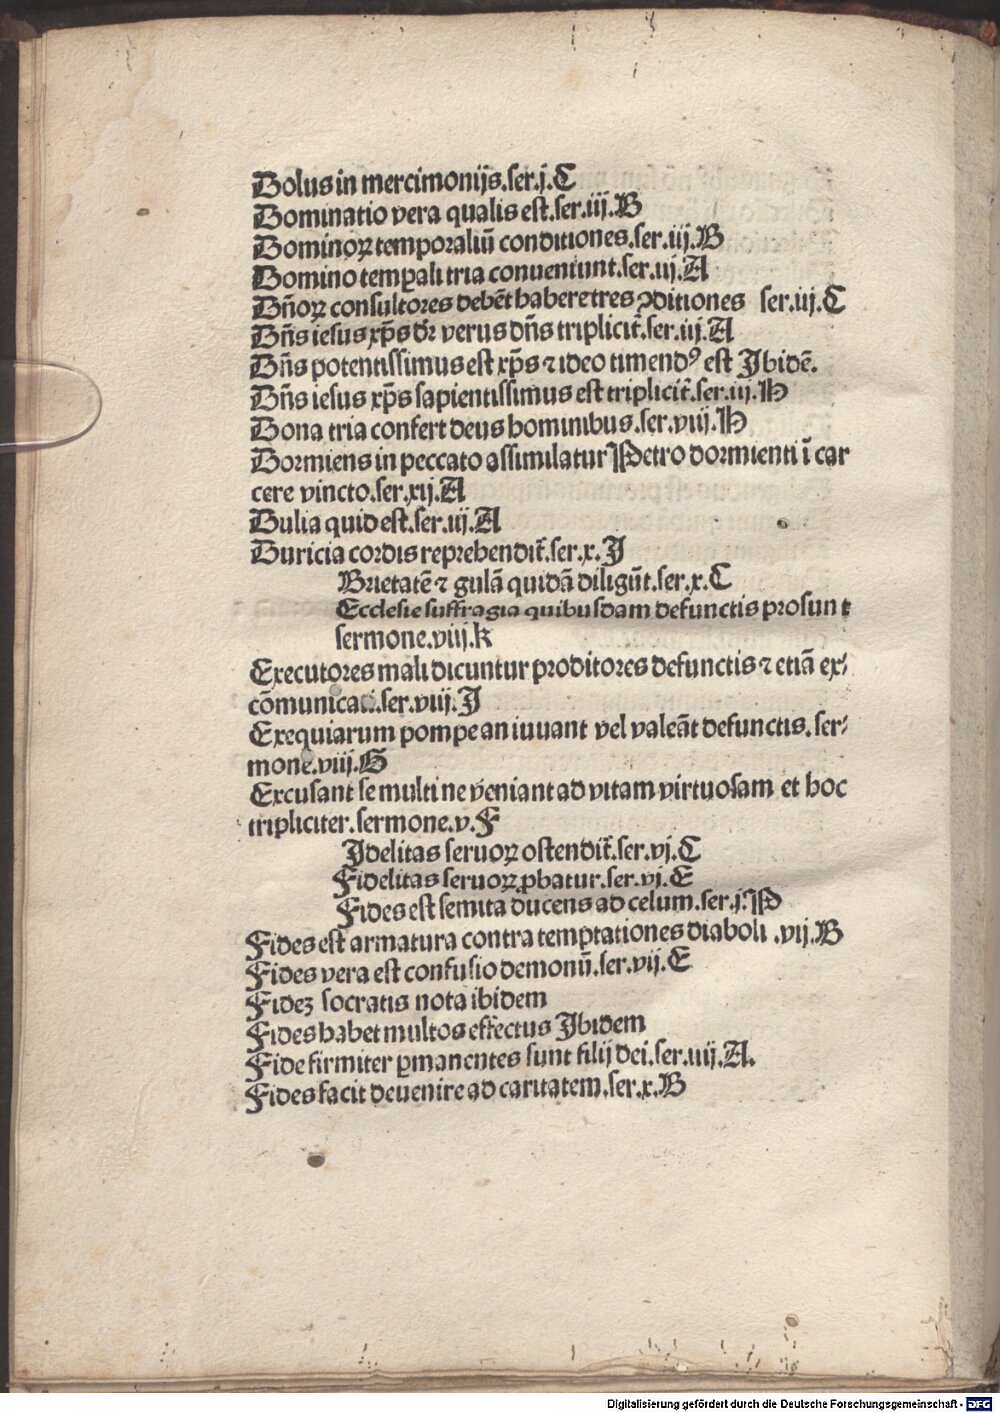 Dolus in mercimonijs.ser.j.C
Dominatio vera qualis est.ser.iij.B
Dominoꝝ temporaliū conditiones.ser.iij.B
Domino temꝑali tria conueniunt.ser.iij.A
Dn̄oꝝ consultores debēt habere tres ↄditiones ser.iij.C
Dn̄s iesus xp̄s dr̄ verus dn̄s triplicit̄.ser.iij.A
Dn̄s potentissimus est xp̄s ⁊ ideo timendꝰ est Ibidē.
Dn̄s iesus xp̄s sapientissimus est triplicit̄.ser.iij.H
Dona tria confert deus hominibus.ser.viij.H
Dormiens in peccato assimilatur Petro dormienti ī car
cere vincto.ser.xij.A
Dulia quid est.ser.iij.A
Duricia cordis reprehendit̄.ser.x.I
Brietatē ⁊ gulā quidā diligūt.ser.x.C
Ecclesie suffragia quibusdam defunctis prosunt
sermone.viij.k
Executores mali dicuntur proditores defunctis ⁊ etiā ex⸗
cōmunicati.ser.viij.I
Exequiarum pompe an iuuant vel valeāt defunctis.ser⸗
mone.viij.G
Excusant se multi ne veniant ad vitam virtuosam et hoc
tripliciter.sermone.v.F
Idelitas seruoꝝ ostendit̄.ser.vj.C
Fidelitas seruoꝝ ꝓbatur.ser.vj.E
Fides est semita ducens ad celum.ser.j.P
Fides est armatura contra temptationes diaboli .vij.B
Fides vera est confusio demonū.ser.vij.E
Fideꝫ socratis nota ibidem
Fides habet multos effectus Ibidem
Fide firmiter ꝑmanentes sunt filij dei.ser.iiij.A.
Fides facit deuenire ad caritatem.ser.x.B
Digitalisierung gefördert durch die Deutsche Forschungsgemeinschaft - DFG